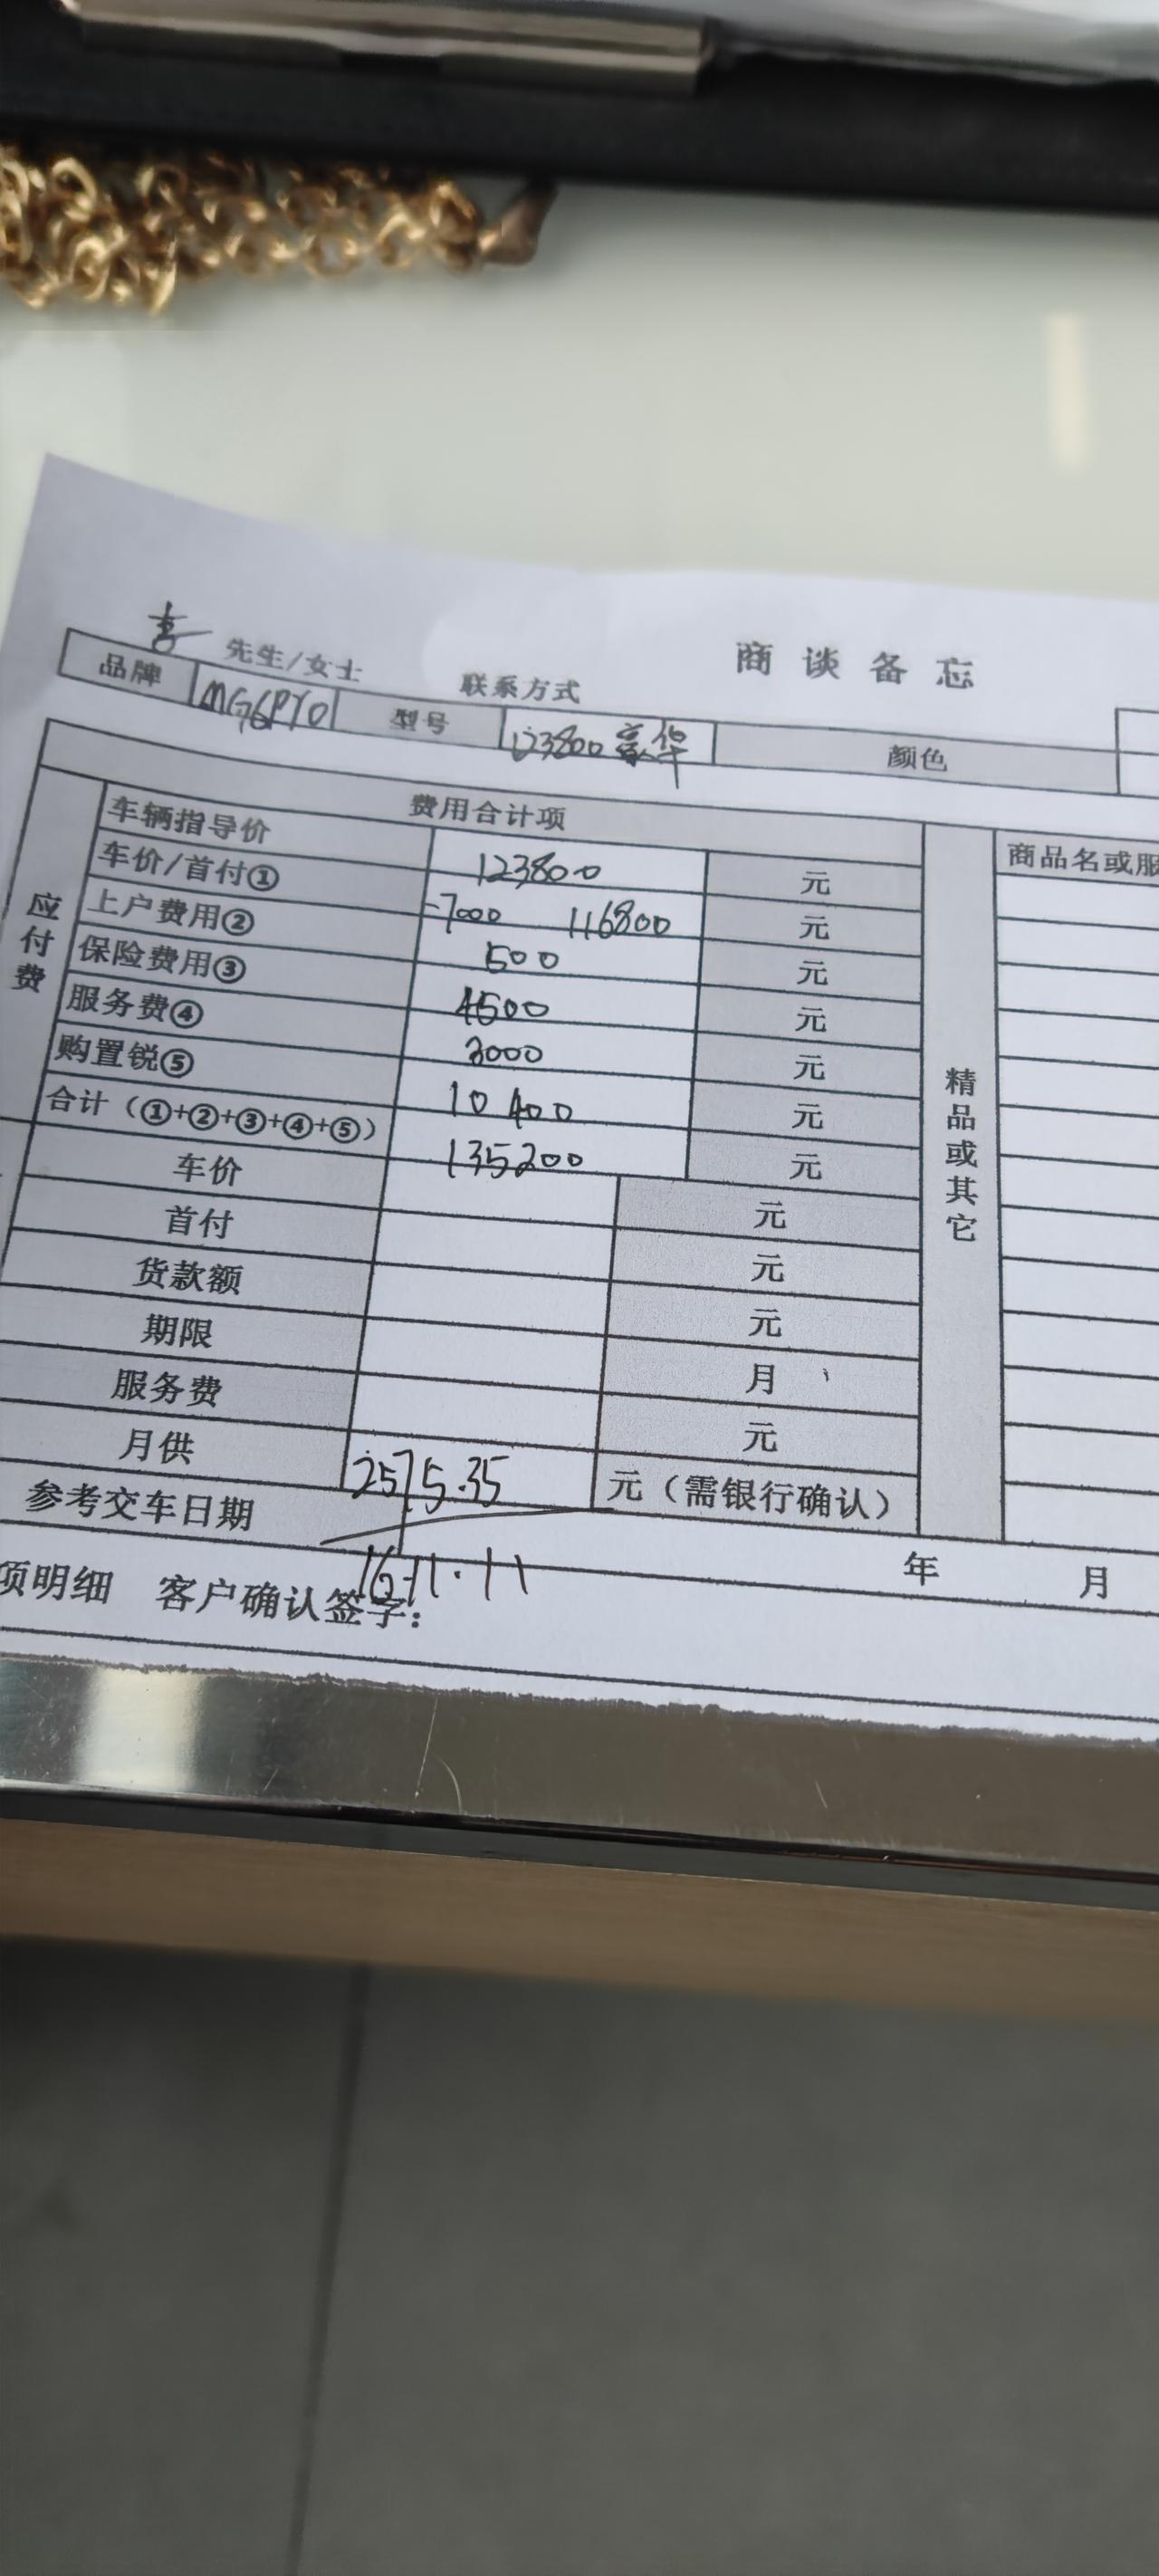 商谈备忘
先生/女士 联系方式
品牌 MG6PYO 型号 123800 豪华 颜色
费用合计项
应付费
车辆指导价 123800 元
车价/首付① -7000 116800 元
上户费用② 500 元
保险费用③ 4500 元
服务费④ 3000 元
购置锐⑤ 10400 元
合计（①+②+③+④+⑤） 135200 元
车价 元
首付 元
货款额 元
期限 月
服务费 元
月供 2575.35 元（需银行确认）
参考交车日期 年 月
项明细 客户确认签字：
精品或其它
商品名或服